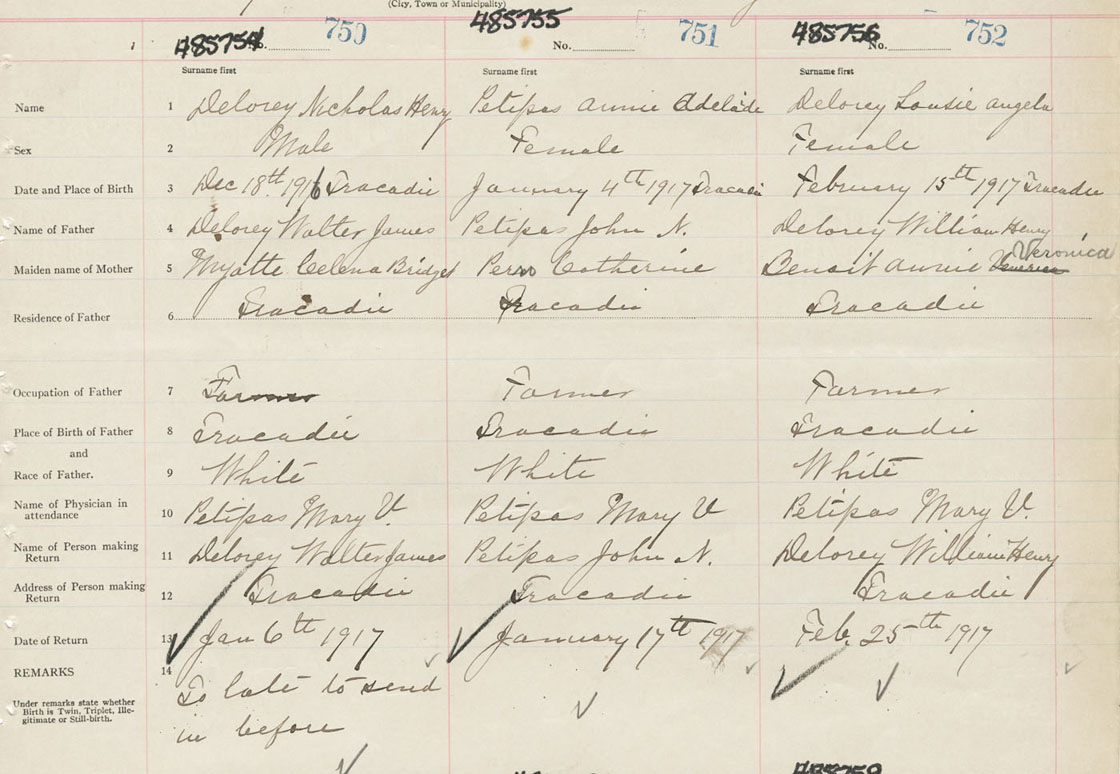 (City, Town or Municipality)
485754 No. 750 485755 No. 751 485756 No. 752
Surname first Surname first Surname first
Name 1 Delorey Nicholas Henry Petipas Annie Adelaide Delorey Lousie Angela
Sex 2 Male Female Female
Date and Place of Birth 3 Dec 18th 1916 Tracadie January 4th 1917 Tracadie February 15th 1917 Tracadie
Name of Father 4 Delorey Walter James Petipas John N. Delorey William Henry
Maiden name of Mother 5 Wyatte Celena Bridget Perro Catherine Benoit Annie Veronica
Residence of Father 6 Tracadie Tracadie Tracadie
Occupation of Father 7 Farmer Farmer Farmer
Place of Birth of Father 8 Tracadie Tracadie Tracadie
and
Race of Father. 9 White White White
Name of Physician in
attendance 10 Petipas Mary V. Petipas Mary V Petipas Mary V.
Name of Person making
Return 11 Delorey Walter James Petipas John N. Delorey William Henry
Address of Person making
Return 12 Tracadie Tracadie Tracadie
Date of Return 13 Jan 6th 1917 January 17th 1917 Feb. 25th 1917
REMARKS 14
To late to send
in before
Under remarks state whether
Birth is Twin, Triplet, Ille-
gitimate or Still-birth.
485759